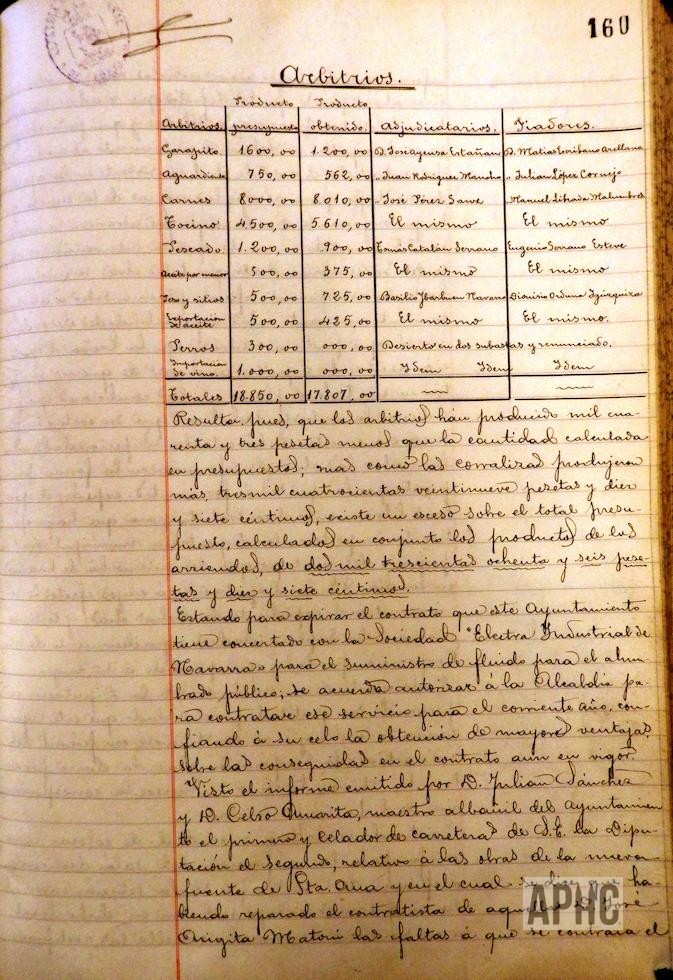 160
Arbitrios.
Producto Producto
Arbitrios. presupuesto obtenido. Adjudicatarios. Fiadores.
Garapito. 1600,00 1.200,00 D. José Ayensa Estañan D. Matias Escribano Arellano
Aguardiente 750,00 562,00 " Juan Rodriguez Mancho " Julian López Cornejo
Carnes 8000,00 8.010,00 " José Pérez Manuel
Tocino 4.500,00 5.610,00 El mismo El mismo
Pescado. 1.200,00 900,00 Tomás Catalán Serrano Eugenio Serrano Esteve
Aceite por menor 500,00 375,00 El mismo El mismo
Peso y sitios 500,00 725,00 Basilio Navarro Dionisio Orduna
Exportación de aceite 500,00 425,00 El mismo El mismo.
Perros 300,00 000,00 Desierto en dos subastas y renunciado.
Importación de vino. 1.000,00 000,00 Idem Idem Idem
Totales 18.850,00 17.807,00
Resulta pues, que los arbitrios han producido mil cua-
renta y tres pesetas menos que la cantidad calculada
en presupuestos; mas como las corralizas produjeron
más, tres mil cuatrocientas veintinueve pesetas y diez
y siete céntimos, existe un exceso sobre el total presu-
puesto, calculados en conjunto los productos de los
arriendos, de dos mil trescientas ochenta y seis pese-
tas y diez y siete céntimos.
Estando para expirar el contrato que este Ayuntamiento
tiene concertado con la Sociedad "Electra Industrial de
Navarra" para el suministro de fluido para el alum-
brado público; se acuerda autorizar á la Alcaldía pa-
ra contratar ese servicio para el corriente año, con-
fiando á su celo la obtención de mayores ventajas
sobre las conseguidas en el contrato aun en vigor.
Visto el informe emitido por D. Julián Sánchez
y D. Celso Amorita, maestro albañil del Ayuntamien
to el primero y Celador de carreteras de S.E. la Dipu-
tación el segundo, relativo á las obras de la nueva
fuente de Sta. Ana y en el cual se dice que ha-
biendo reparado el contratista de aquellas D. José
Angita las faltas á que se contraía el
APHC